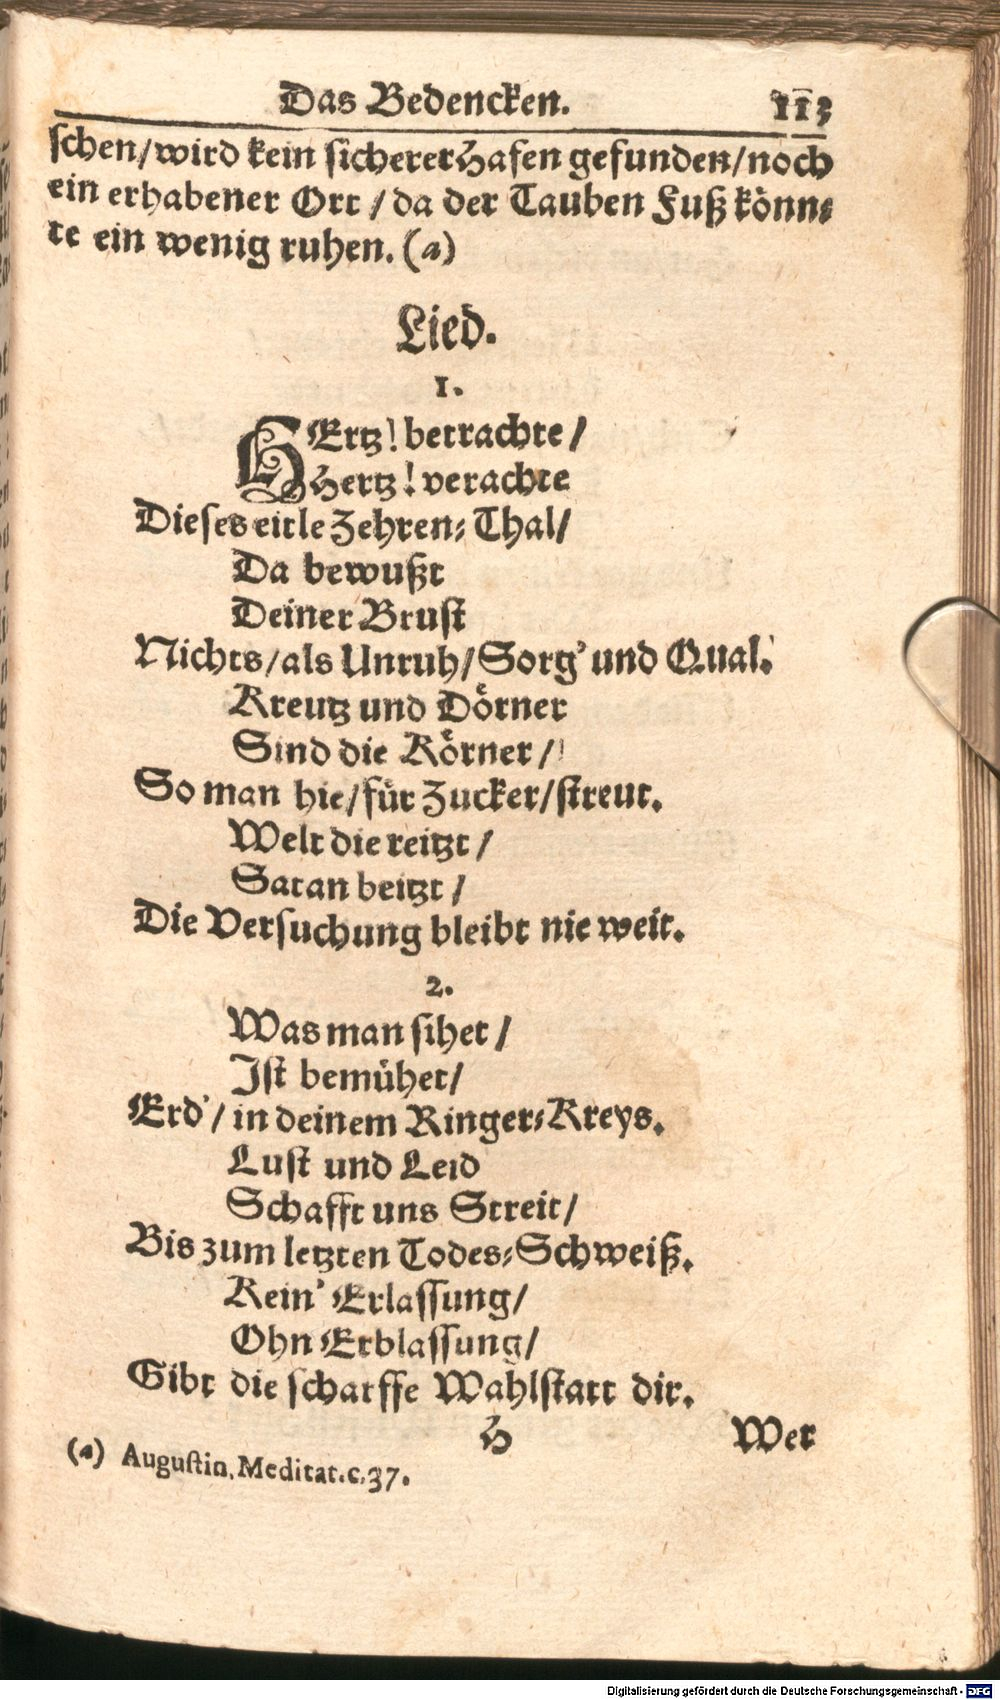 Das Bedencken. 113
schen/wird kein sicherer Hafen gefunden/noch
ein erhabener Ort /da der Tauben Fuß könn⸗
te ein wenig ruhen. (a)
Lied.
1.
HErtz! betrachte/
Hertz! verachte
Dieses eitle Zehren⸗Thal/
Da bewußt
Deiner Brust
Nichts/als Unruh/Sorg' und Qual.
Kreutz und Dörner
Sind die Körner/
So man hie/für Zucker/streut.
Welt die reitzt/
Satan beitzt/
Die Versuchung bleibt nie weit.
2.
Was man sihet/
Ist bemühet/
Erd'/ in deinem Ringer⸗Kreys.
Lust und Leid
Schafft uns Streit/
Bis zum letzten Todes⸗Schweiß.
Kein' Erlassung/
Ohn Erblassung/
Gibt die scharffe Wahlstatt dir.
H Wer
(a) Augustin. Meditat. c. 37.
Digitalisierung gefördert durch die Deutsche Forschungsgemeinschaft - DFG